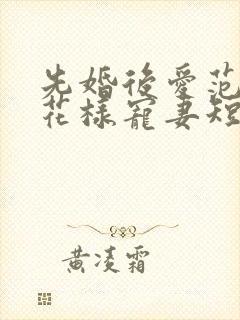 先婚後愛范
花樣寵妻短
黃凌霜